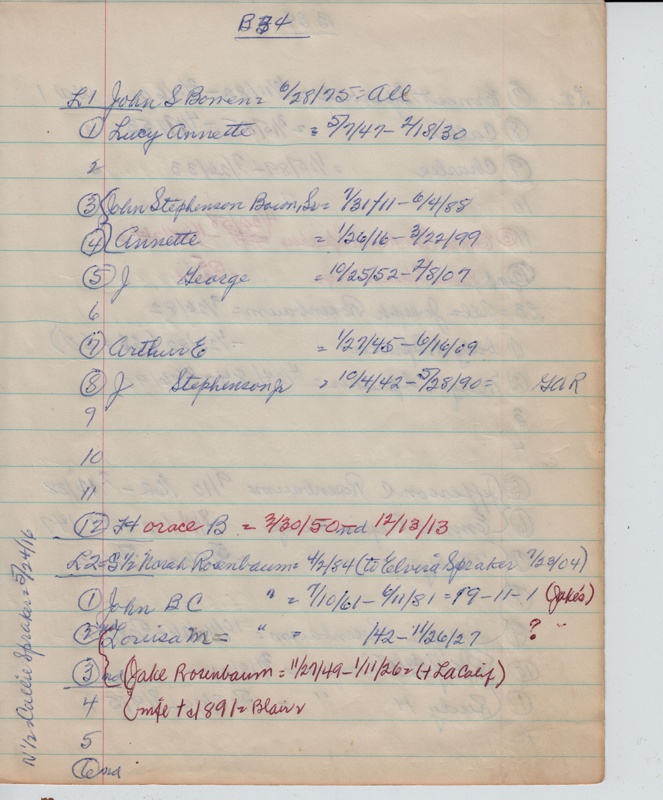 B 34
L1 John S Bowen = 6/28/75 = All
① Lucy Annette = 5/7/47 - 2/18/30
2
③ {John Stephenson Bowen, Sr = 7/31/11 - 6/4/85
④ {Annette = 1/26/16 - 3/22/99
⑤ J George = 10/25/52 - 2/8/07
6
⑦ Arthur E = 1/27/45 - 6/16/69
⑧ J Stephenson Jr = 10/4/42 - 5/28/90 = GAR
9
10
11
⑫ Horace B = 3/30/50 nd 12/13/13
L2 = S½ Norah Rosenbaum = 4/2/84 (to Elvira Spraker 7/23/04)
① John B C " = 7/10/61 - 6/11/81 = 19-11-1 (Jake's)
2 {Louisa M = " = /42 - 11/26/27 ? "
③ nd {Jake Rosenbaum = 11/27/49 - 1/11/26 = (+ La Calif)
4 {wife + d 1891 = Blair
5
⑥ nd
N ½ Callie Spraker = 5/24/16